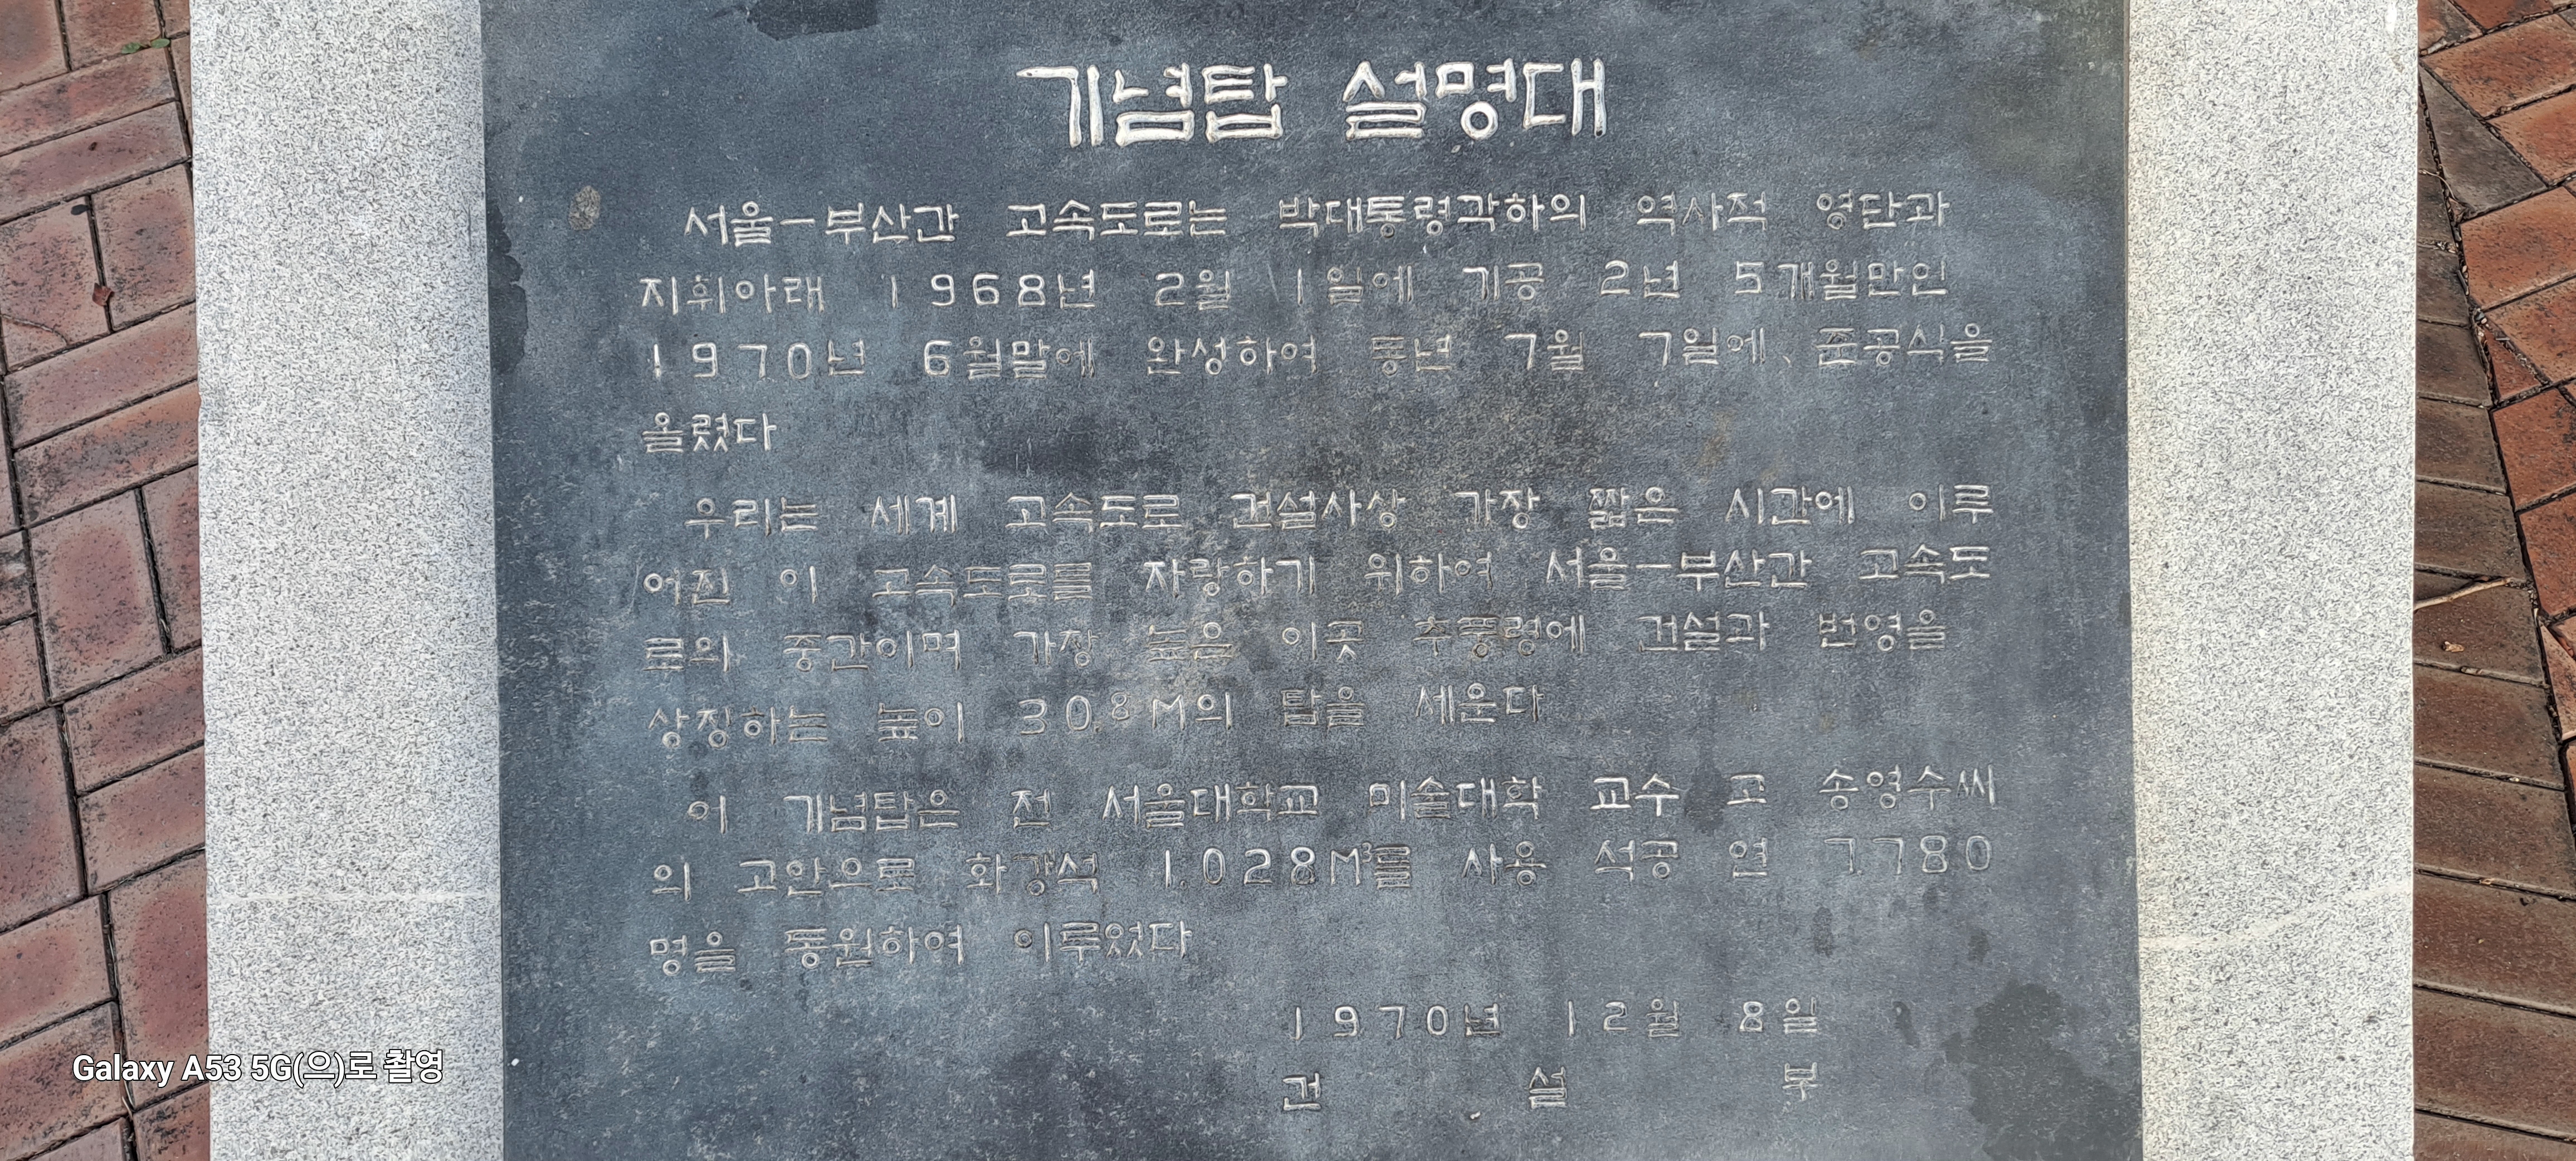 기념탑 설명대
서울-부산간 고속도로는 박대통령각하의 역사적 영단과
지휘아래 1968년 2월 1일에 기공 2년 5개월만인
1970년 6월말에 완성하여 동년 7월 7일에、준공식을
올렸다
우리는 세계 고속도로 건설사상 가장 짧은 시간에 이루
어진 이 고속도로를 자랑하기 위하여 서울-부산간 고속도
로의 중간이며 가장 높은 이곳 추풍령에 건설과 번영을
상징하는 높이 30.8M의 탑을 세운다
이 기념탑은 전 서울대학교 미술대학 교수 고 송영수씨
의 고안으로 화강석 1.028M³를 사용 석공 연 7.780
명을 동원하여 이루었다
1970년 12월 8일
건 설 부
Galaxy A53 5G(으)로 촬영